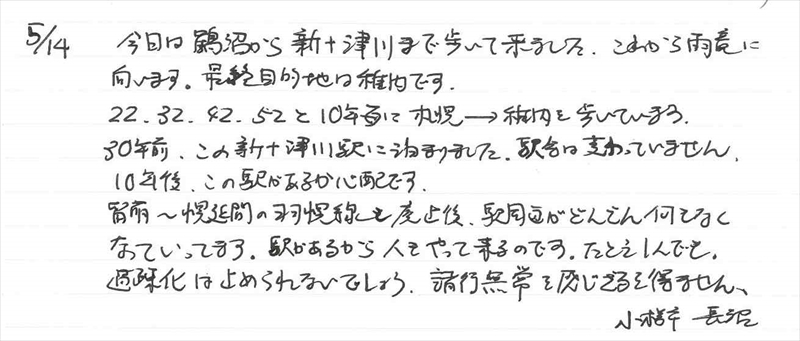 5/14 今日は鶴沼から新十津川まで歩いて来ました、これから雨竜に
向います。最終目的地は稚内です。
22.32.42.52と10年毎に札幌→稚内を歩いています。
30年前、この新十津川駅に泊まりました。駅舎は変わっていません。
10年後、この駅があるか心配です。
留萌〜幌延間の羽幌線も廃止後、駅周辺がどんどん何もなく
なっていってます。駅があるから人もやって来るのです。たとえ1人でも。
過疎化は止められないでしょう。諸行無常を感じざるを得ません、
小樽市 長沼